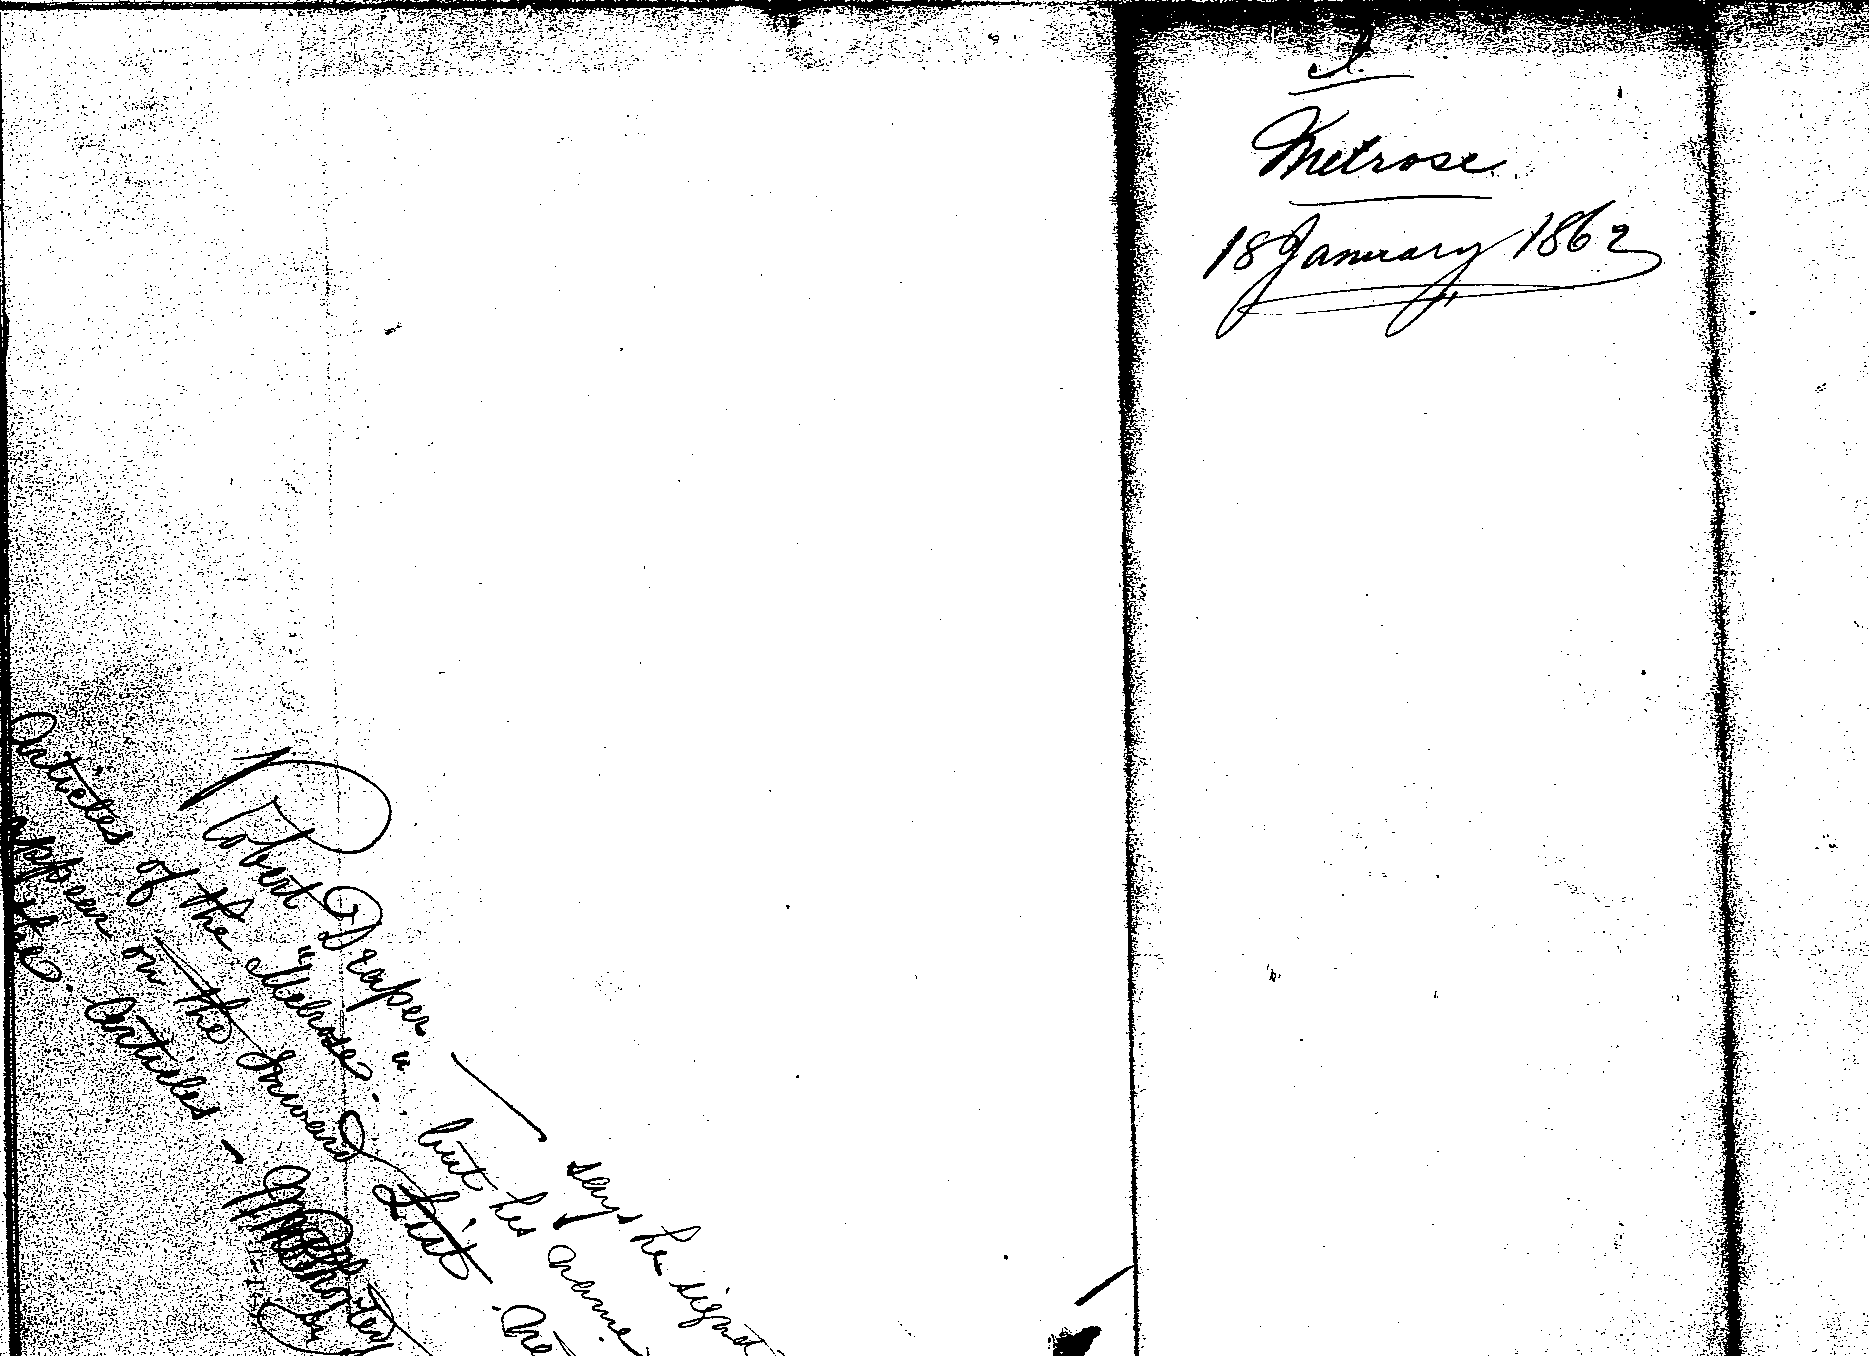 Melrose
18 January 1862
Robert Draper — says he signed
Articles of the "Melrose" but his name
appear on the Inward List
the Articles —